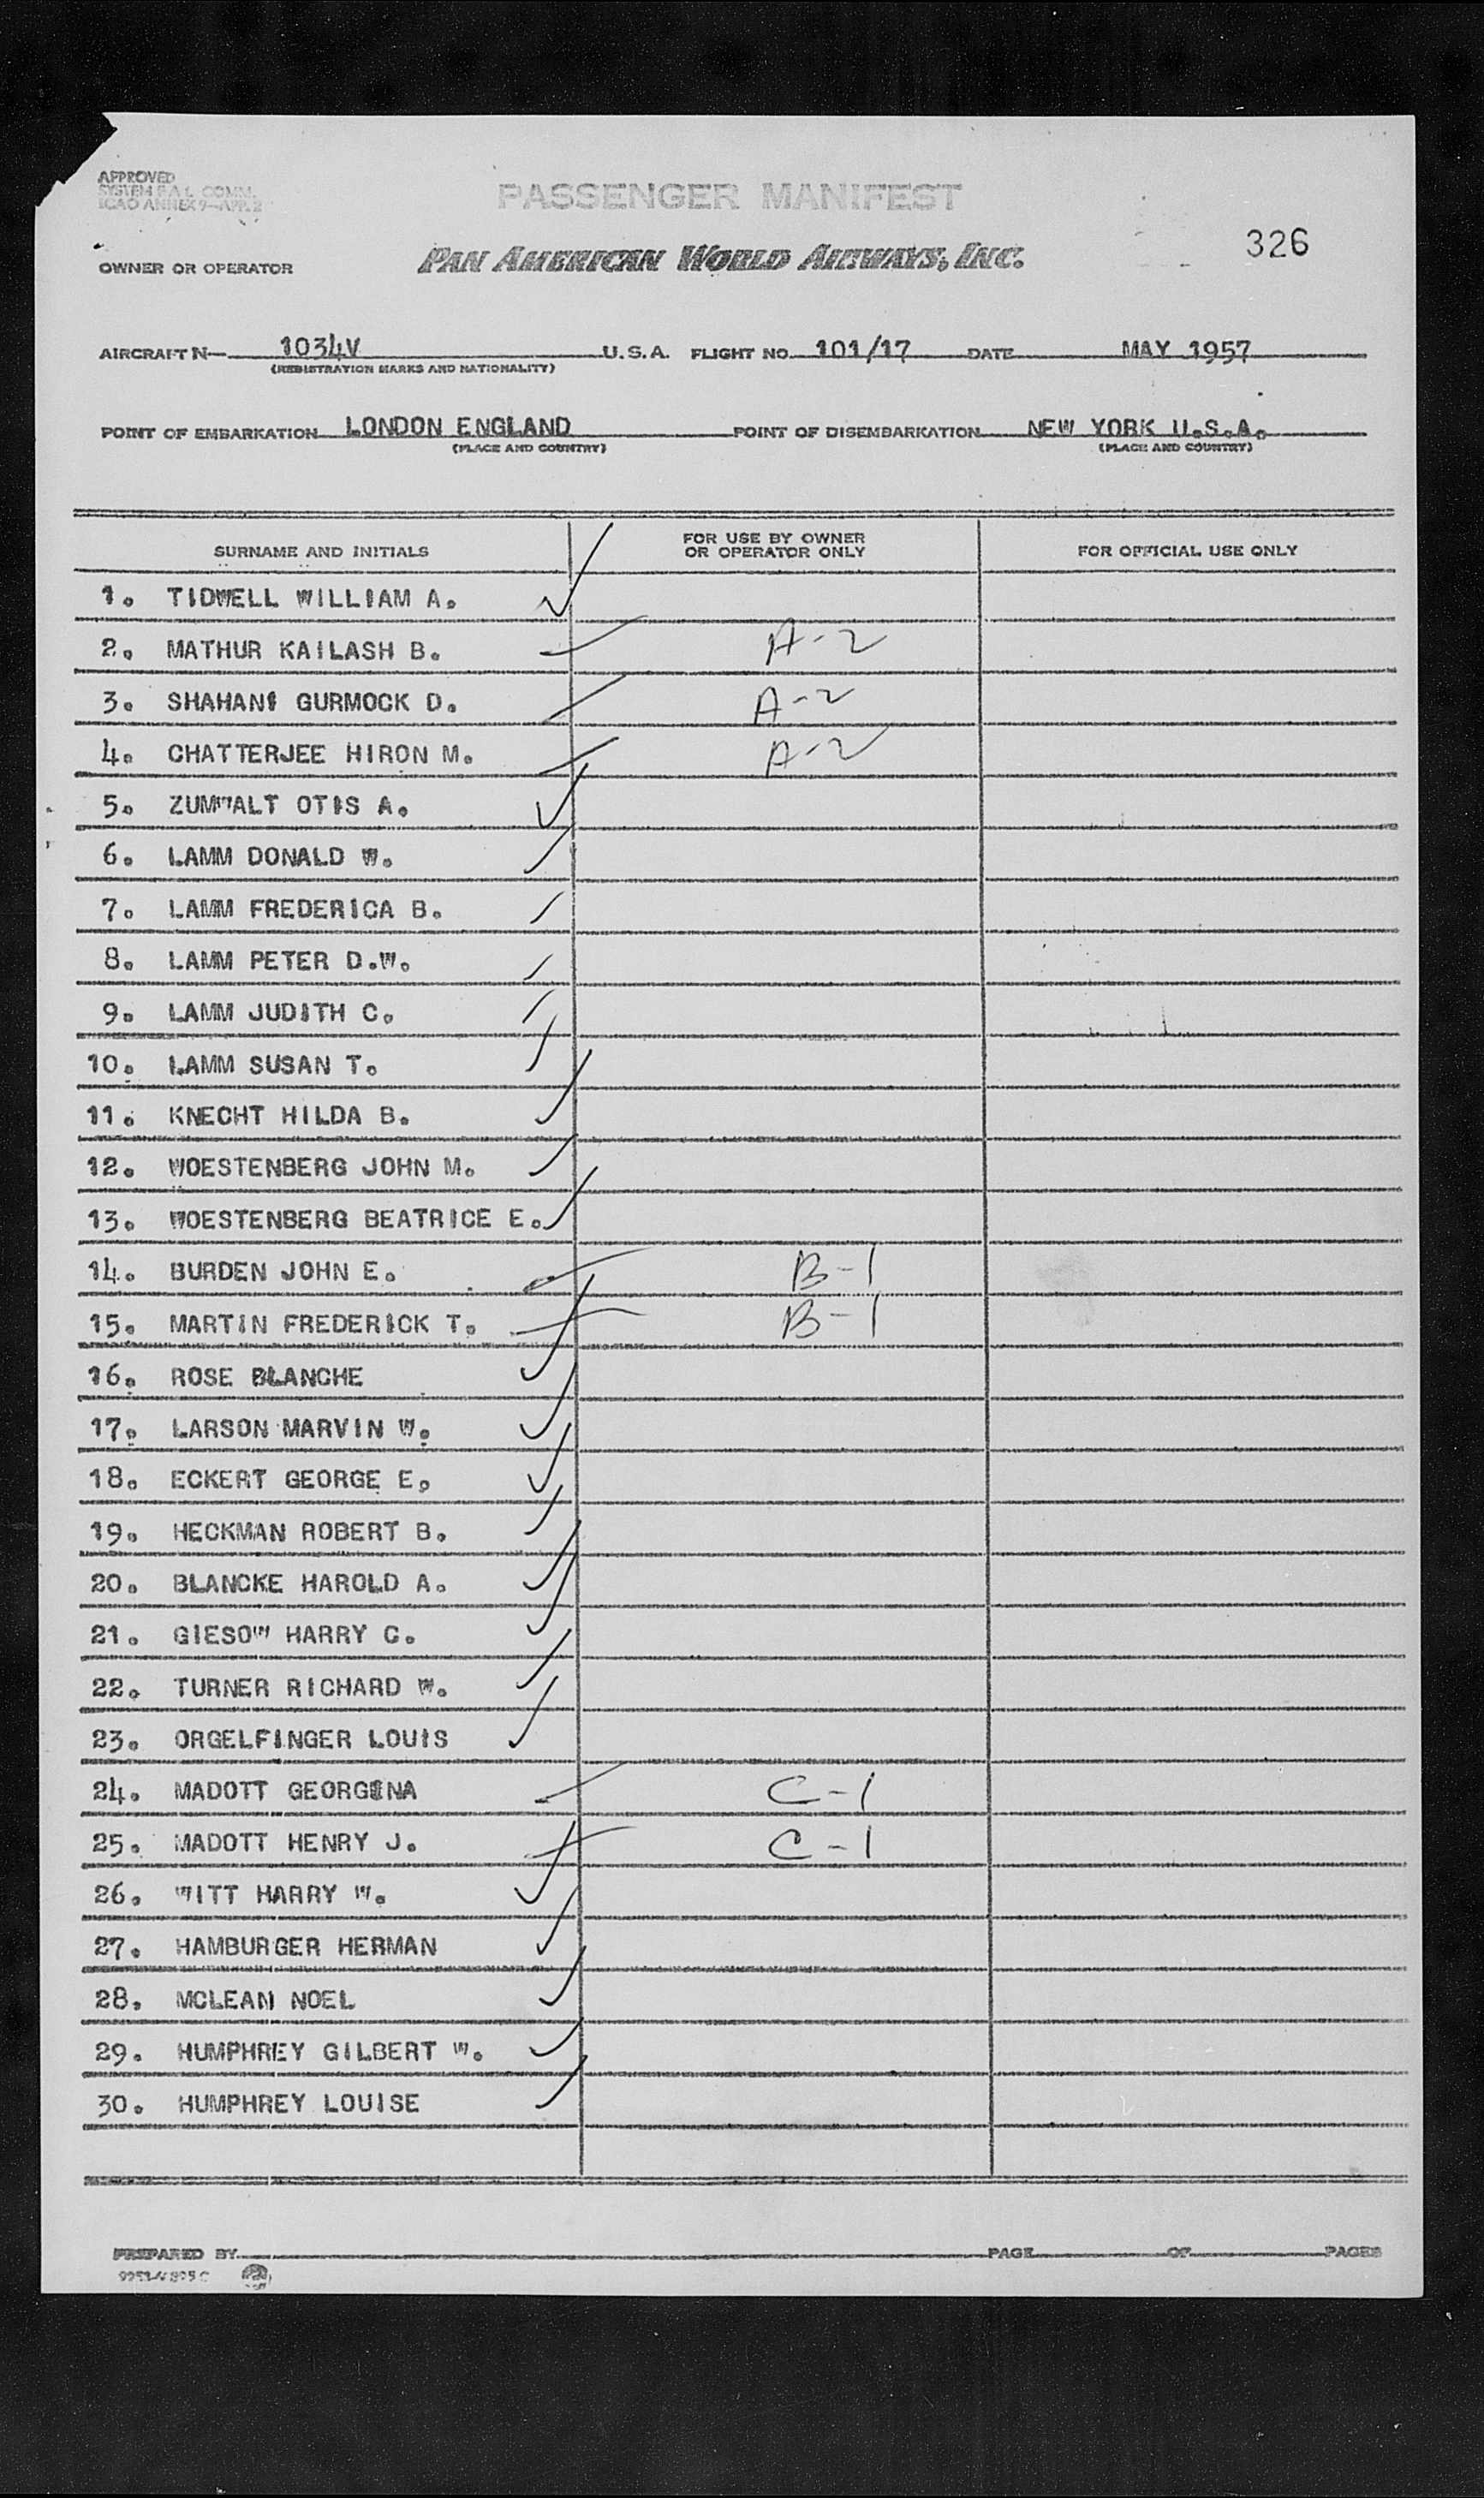 APPROVED
SYSTEM F.A.L. COMM.
ICAO ANNEX 9—APP. 2
PASSENGER MANIFEST
326
OWNER OR OPERATOR PAN AMERICAN WORLD AIRWAYS, INC.
AIRCRAFT N— 1034V U.S.A. FLIGHT NO. 101/17 DATE MAY 1957
(REGISTRATION MARKS AND NATIONALITY)
POINT OF EMBARKATION LONDON ENGLAND POINT OF DISEMBARKATION NEW YORK U.S.A.
(PLACE AND COUNTRY) (PLACE AND COUNTRY)
SURNAME AND INITIALS FOR USE BY OWNER OR OPERATOR ONLY FOR OFFICIAL USE ONLY
1. TIDWELL WILLIAM A.
2. MATHUR KAILASH B. A-2
3. SHAHANI GURMOCK D. A-2
4. CHATTERJEE HIRON M. A-2
5. ZUMWALT OTIS A.
6. LAMM DONALD W.
7. LAMM FREDERICA B.
8. LAMM PETER D.W.
9. LAMM JUDITH C.
10. LAMM SUSAN T.
11. KNECHT HILDA B.
12. WOESTENBERG JOHN M.
13. WOESTENBERG BEATRICE E.
14. BURDEN JOHN E. B-1
15. MARTIN FREDERICK T. B-1
16. ROSE BLANCHE
17. LARSON MARVIN W.
18. ECKERT GEORGE E.
19. HECKMAN ROBERT B.
20. BLANCKE HAROLD A.
21. GIESOW HARRY C.
22. TURNER RICHARD W.
23. ORGELFINGER LOUIS
24. MADOTT GEORGINA C-1
25. MADOTT HENRY J. C-1
26. WITT HARRY W.
27. HAMBURGER HERMAN
28. MCLEAN NOEL
29. HUMPHREY GILBERT W.
30. HUMPHREY LOUISE
PREPARED BY PAGE OF PAGES